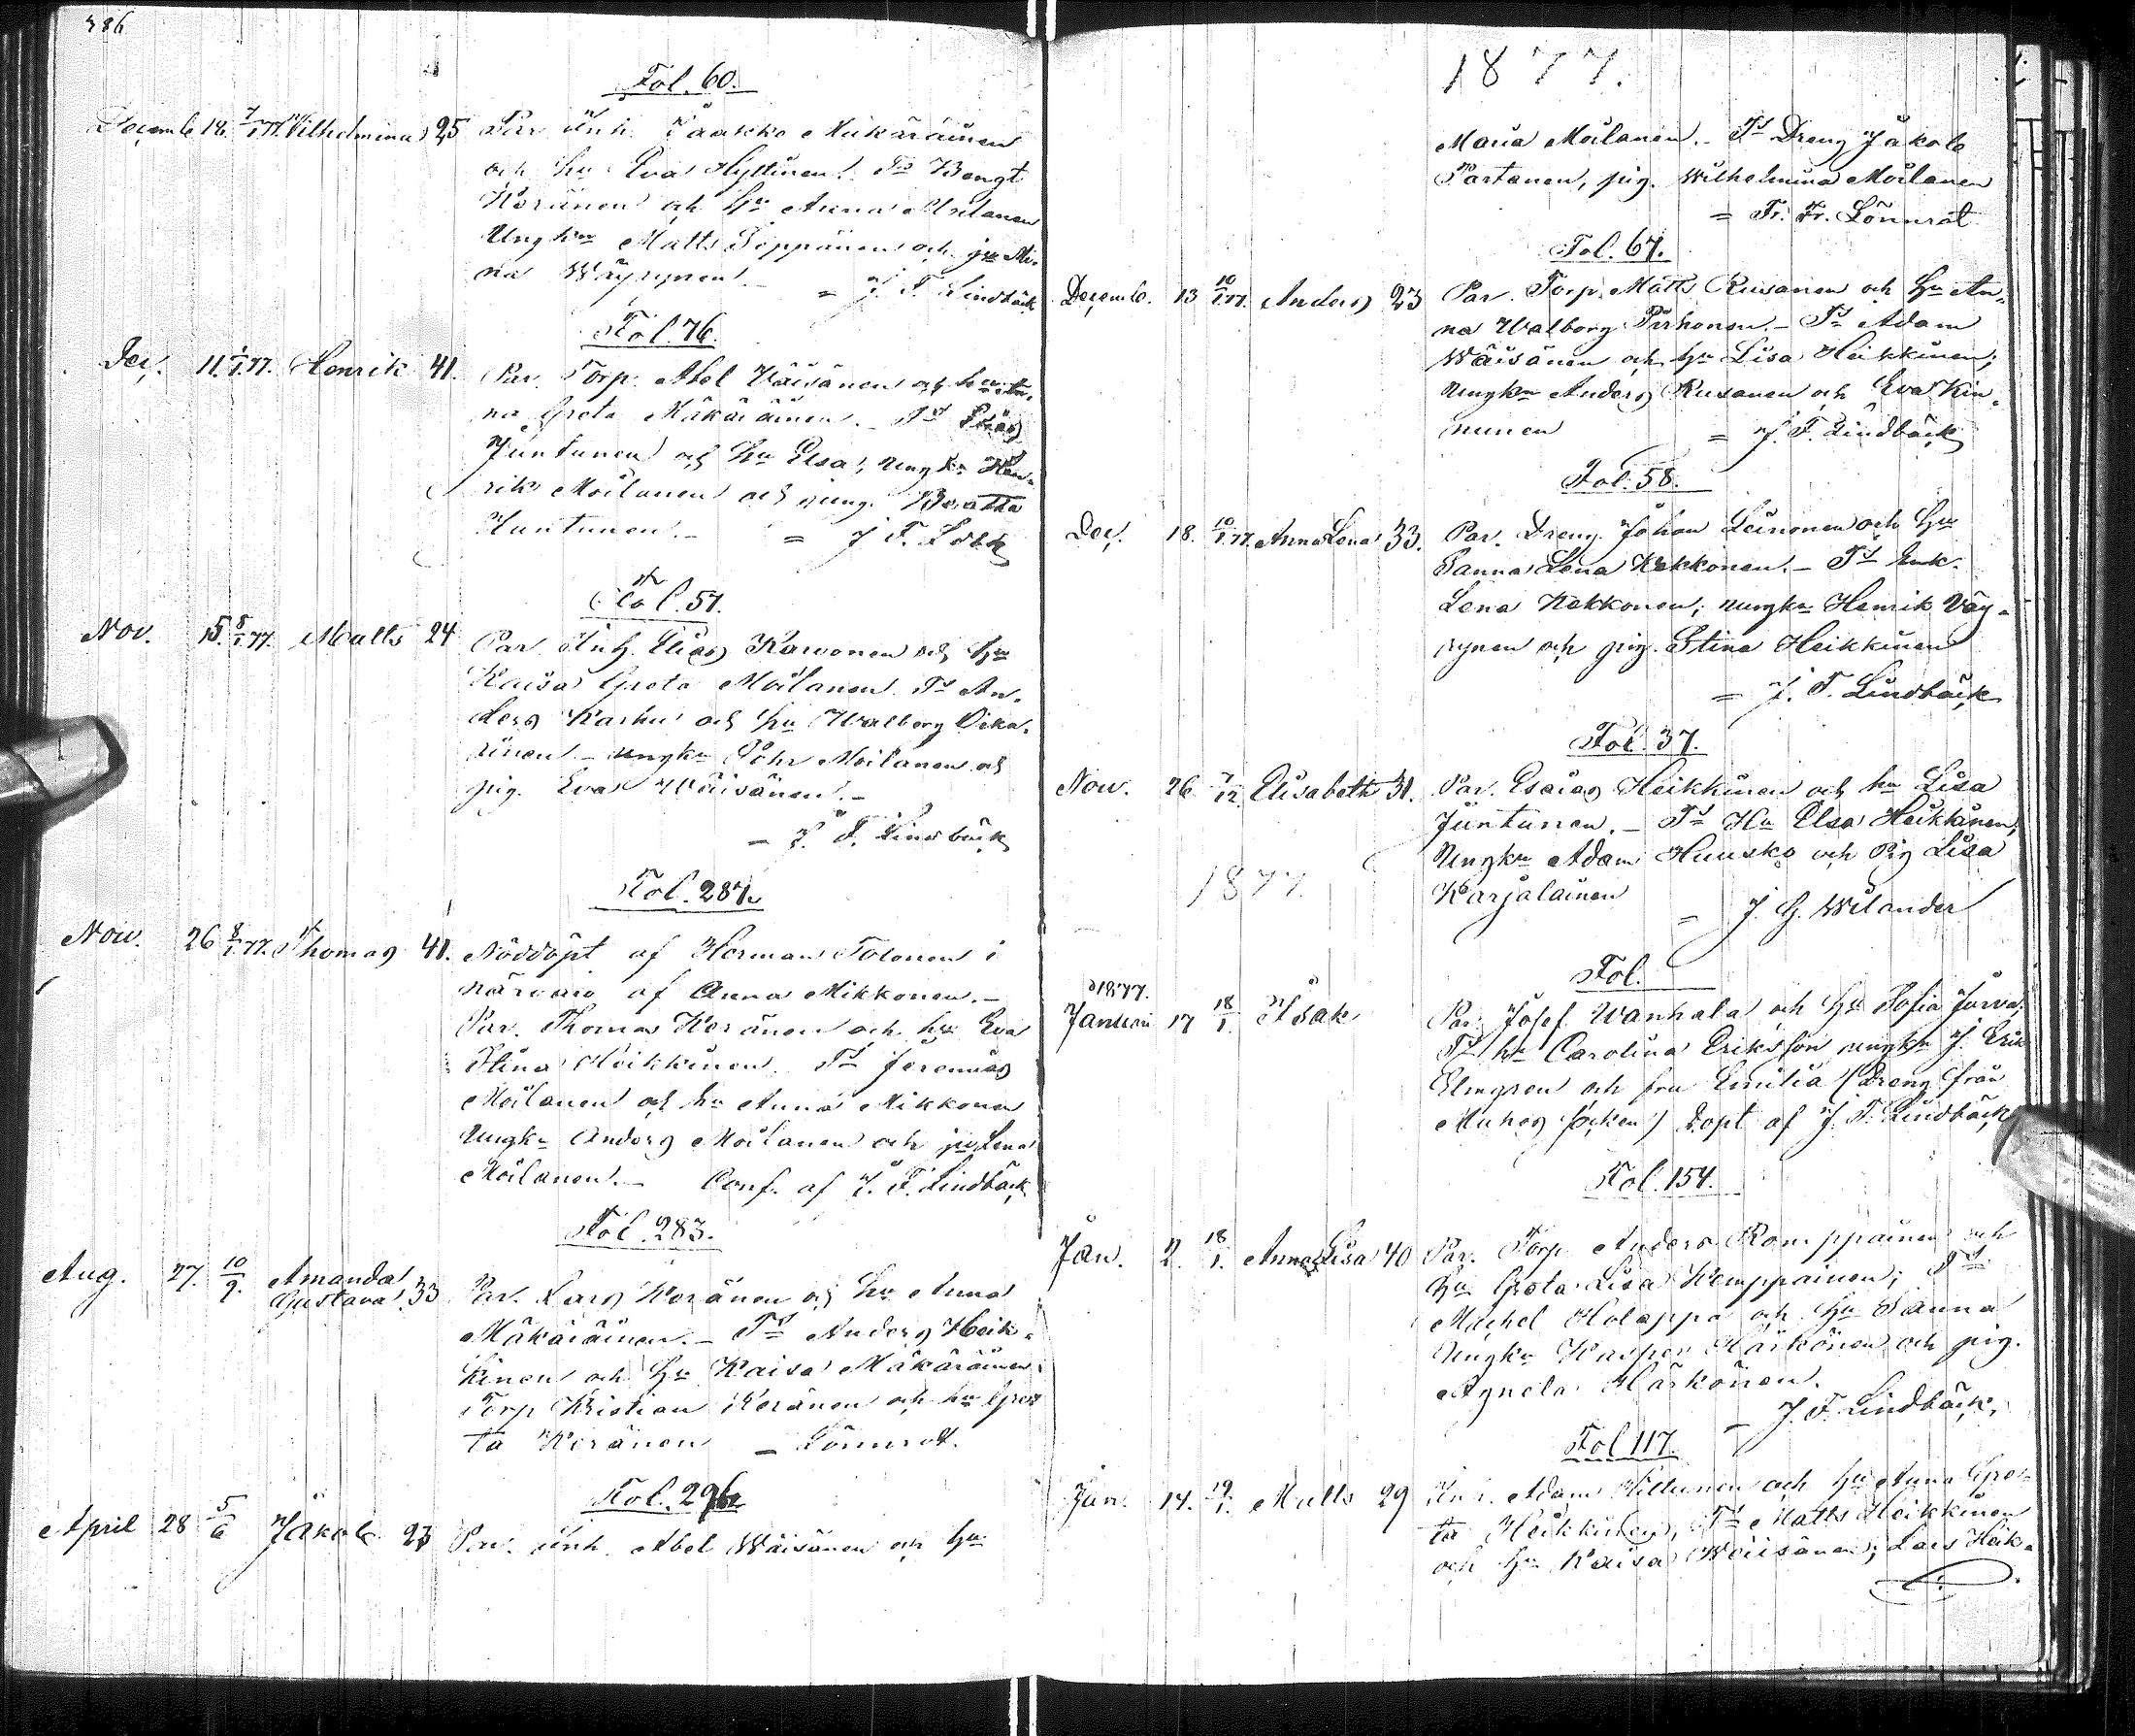 386
Fol. 60.
Decemb. 18. 7/1.77. Vilhelmina 25 Par Inh. Paavo Mikäräinen
och hu Eva Hyttinen. Ts Bengt
Keränen och hu Anna Moilanen
Ungkn Matts Seppänen och jgn Mi-
na Wäyrynen. = J. F. Lindbäck
Fol. 76.
Dec. 11. 7/1.77. Henrik 41. Par. Torp. Abel Väisänen och hu An-
na Greta Mäkäräinen. Ts Elias
Juntunen och hu Elsa, ungkn Hen-
rik Moilanen och jung. Beatta
Juntunen. = J F. Lbck
Fol. 57.
Nov. 15. 8/1.77. Matts 24 Par. Inh. Elias Karvonen och hu
Kaisa Greta Moilanen. Ts An-
ders Karhu och hu Walborg Oika-
rinen. ungkn Johr Moilanen och
pig. Eva Wäisänen. -
= J. F. Lindbäck
Fol. 287.
Nov. 26 8/1.77. Thomas 41. Nöddöpt af Herman Tolonen i
närvaro af Anna Mikkonen. -
Par. Thomas Keränen och hu Eva
Stina Heikkinen. Ts Jeremias
Moilanen och hu Anna Mikkonen
Ungkn Anders Moilanen och jgn Lena
Moilanen. - Conf. af J. F. Lindbäck
Fol. 283.
Aug. 27. 10/9. Amanda
Gustava 33 Par. Lars Keränen och hu Anna
Mäkäräinen. - Ts Anders Heik-
kinen och hu Kaisa Mäkäräinen
Torp Kristian Keränen och hu Gre-
ta Keränen = Lönnrot.
Fol. 296
April 28 5/6 Jakob 23 Par. inh. Abel Wäisänen och hu
1877.
Maria Moilanen. - Ts Dreng Jakob
Partanen, pig. Wilhelmina Moilanen
= Fr. Fr. Lönnrot
Fol. 67.
Decemb. 13 10/1.77. Anders 23 Par. Torp. Matts Rusanen och hu An-
na Walborg Pirhonen. - Ts Adam
Wäisänen och hu Lisa Heikkinen;
Ungkn Anders Rusanen och Eva Kin-
nunen = J. F. Lindbäck
Fol. 58.
Dec. 18. 10/1.77. Anna Lena 33. Par. Dreng Johan Leinonen och hu
Sanna Lena Kekkonen. - Ts Enk.
Lena Kekkonen; ungkn Henrik Väy-
rynen och pig. Stina Heikkinen
= J. F. Lindbäck
Fol. 37.
Nov. 26 7/12 Elisabeth 31. Par. Esaias Heikkinen och hu Lisa
Juntunen. - Ts Hu Elsa Heikkinen,
Ungkn Adam Huusko och Pig Lisa
Karjalainen = J. G. Wilander
1877.
Fol.
1877.
Januari 17 18/1. Isak Par. Josef Wanhala och hu Sofia Jurva;
Ts hu Carolina Eriksson ungkn J. Erik
Elmgren och fru Emilia (Dreng från
Muhos socken) Döpt af J. F. Lindbäck
Fol. 154.
Jan. 2. 18/1. Anna Lisa 40 Par. Torp Anders Romppainen och
hu Greta Lisa Kemppainen; Ts
Michel Holappa och hu Sanna
Ungkn Kasper Härkönen och pig.
Agneta Härkönen.
= J. F. Lindbäck.
Fol 117.
Jan. 14. 19/1. Matts 29 Inh. Adam Kiltunen och hu Anna Gre-
ta Heikkinen, Ts Matts Heikkinen
och hu Kaisa Wäisänen; Lars Heik-